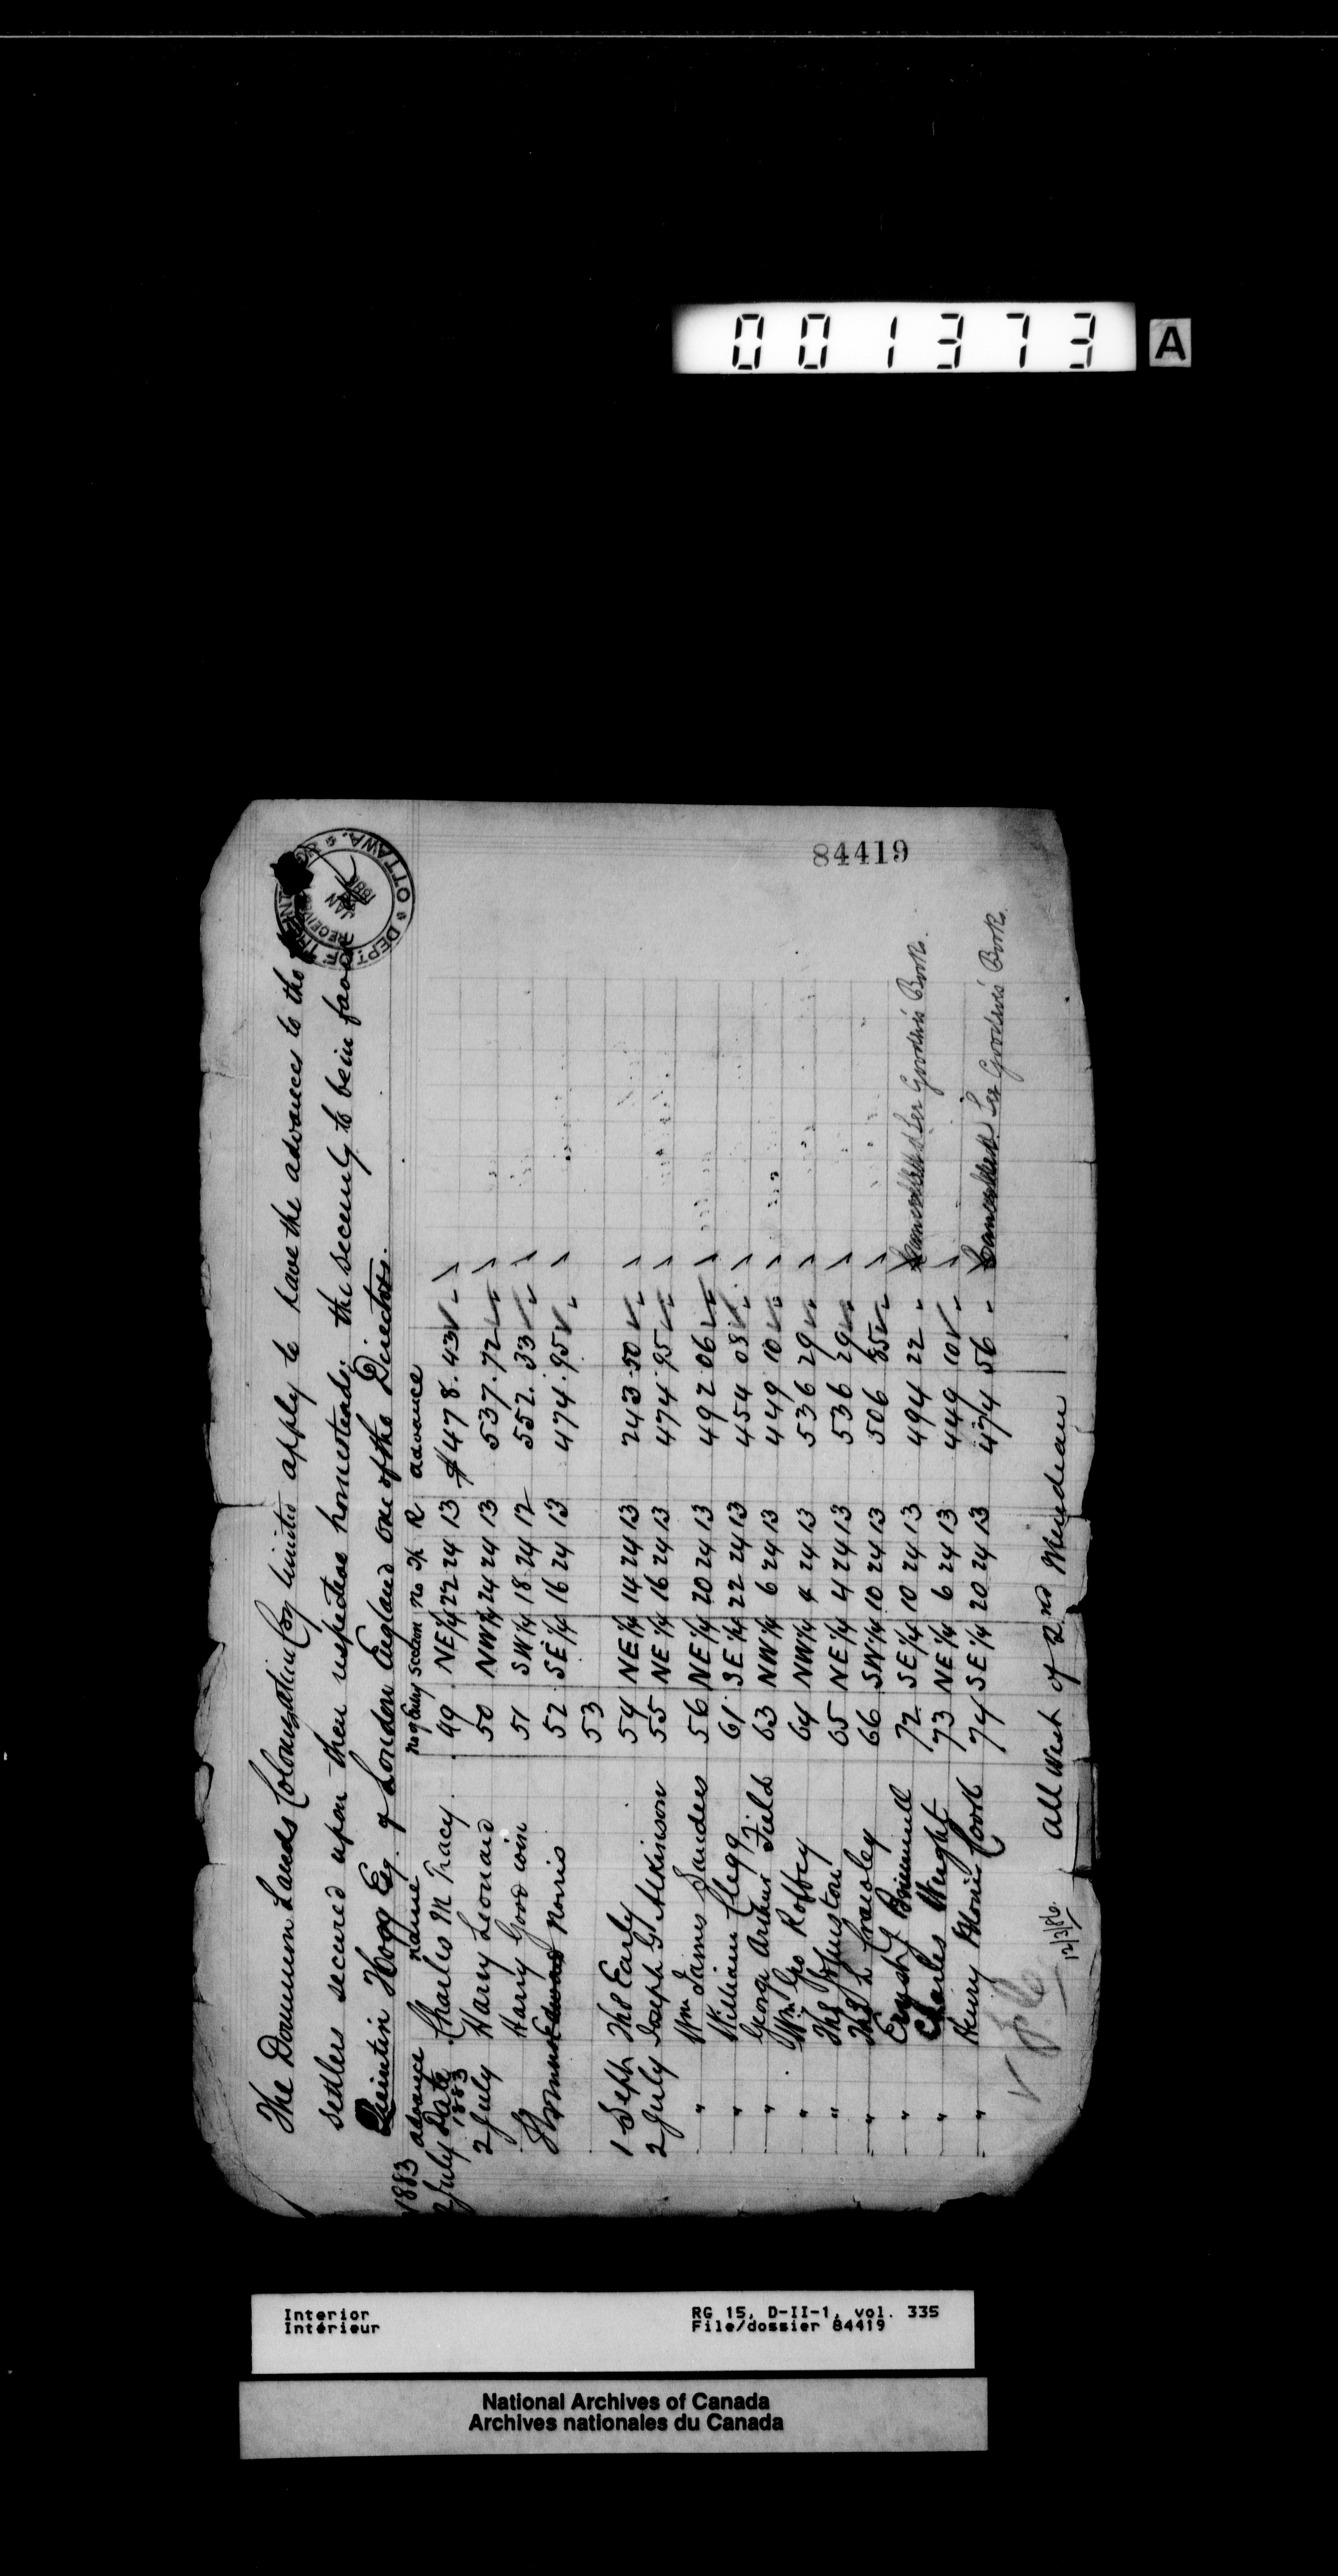 001373 A
84419
DEPT. OF THE INTERIOR OTTAWA.
RECEIVED
JAN
The Dominion Lands Colonization Coy limited apply to have the advances to the
settlers secured upon their respective homesteads. the security to be in favor
Quintin Hogg Eq. of London England one of the Directors.
1883 advance name No of Entry Section No Tp R advance
2 July Date 1883 Charles M Tracy 49 NE 1/4 22 24 13 $478.43
2 July Harry Leonard 50 NW 1/4 24 24 13 537.72
Harry Goodwin 51 SW 1/4 18 24 12 552.33
Norris 52 SE 1/4 16 24 13 474.95
53
1 Sept Thos Early 54 NE 1/4 14 24 13 243.50
2 July Joseph G. Atkinson 55 NE 1/4 16 24 13 474.95
" Wm James Sanders 56 NE 1/4 20 24 13 492 06
" William Clegg 61 SE 1/4 22 24 13 454 08
" George Arthur Field 63 NW 1/4 6 24 13 449 10
" Wm Geo Roffey 64 NW 1/4 4 24 13 536 29
" Thos Johnston 65 NE 1/4 4 24 13 536 29
" Thos L 66 SW 1/4 10 24 13 506 85
" 72 SE 1/4 10 24 13 494 22 " Cancelled See Goodwin's Book.
" Charles Wright 73 NE 1/4 6 24 13 449 10
" Henry Morris Cook 74 SE 1/4 20 24 13 474 56 " Cancelled See Goodwin's Book.
All West of 2nd Meridian
12/3/86.
Interior RG 15, D-II-1, vol. 335
Intérieur File/dossier 84419
National Archives of Canada
Archives nationales du Canada